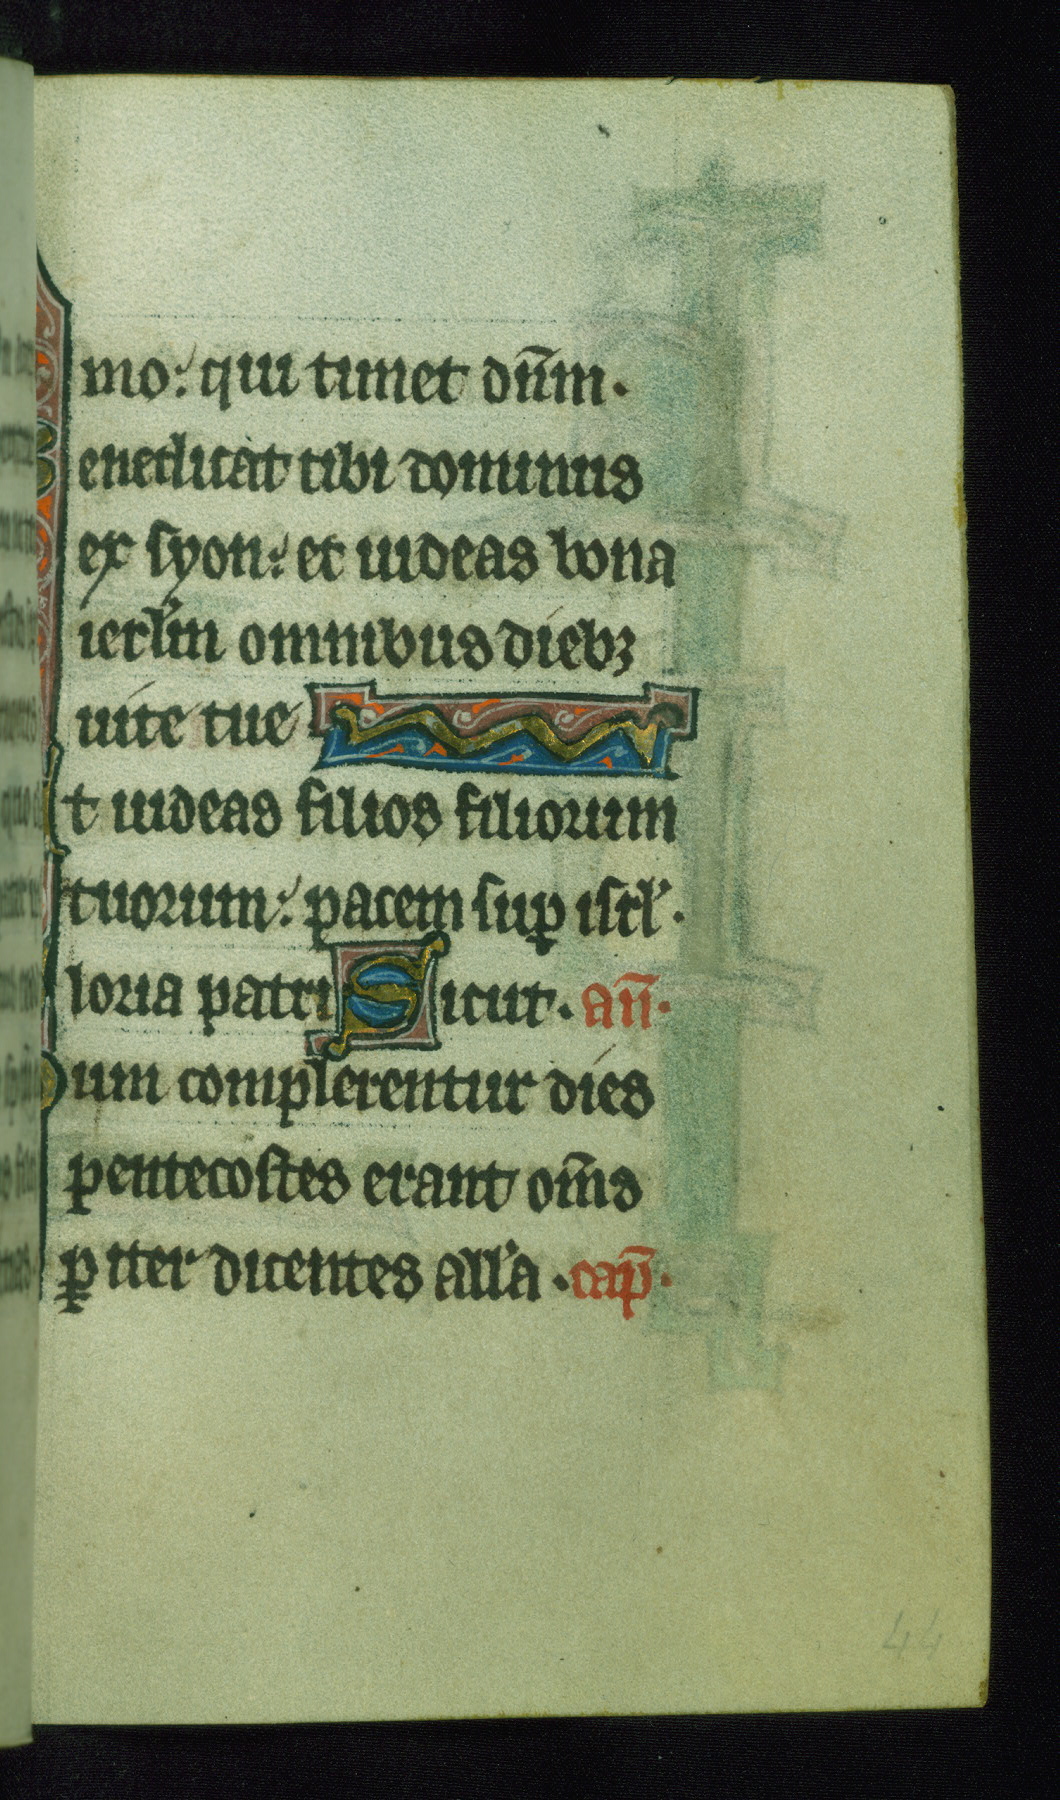 mo: qui timet dn̄m.
Benedicat tibi dominus
ex syon: et uideas bona
ierl̄m omnibus diebꝫ
uite tue
Et uideas filios filiorum
tuorum: pacem suꝑ isrl̓.
Gloria patri Sicut. an̄.
Cum complerentur dies
pentecostes erant om̄s
ꝑiter dicentes all̓a. cap̄.
44